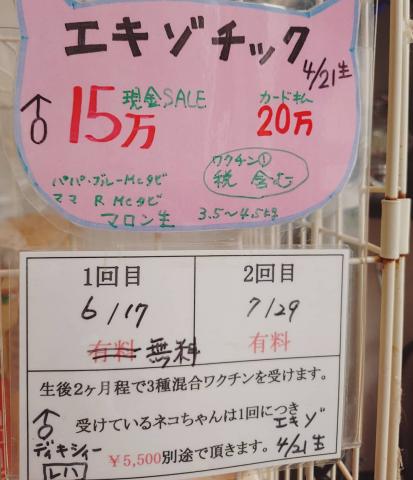 エキゾチック
4/21生
♂ 15万 現金SALE
カードキム 20万
ワクチン①
税含む
パパ・ブルーMcタビ
ママ R Mcタビ
マロン生 3.5〜4.5kg
1回目 2回目
6/17 7/29
有料 無料 有料
生後2ヶ月程で3種混合ワクチンを受けます。
♂ 受けているネコちゃんは1回につき
エキゾ
ディキシー ¥5,500別途で頂きます。 4/21生
レハ